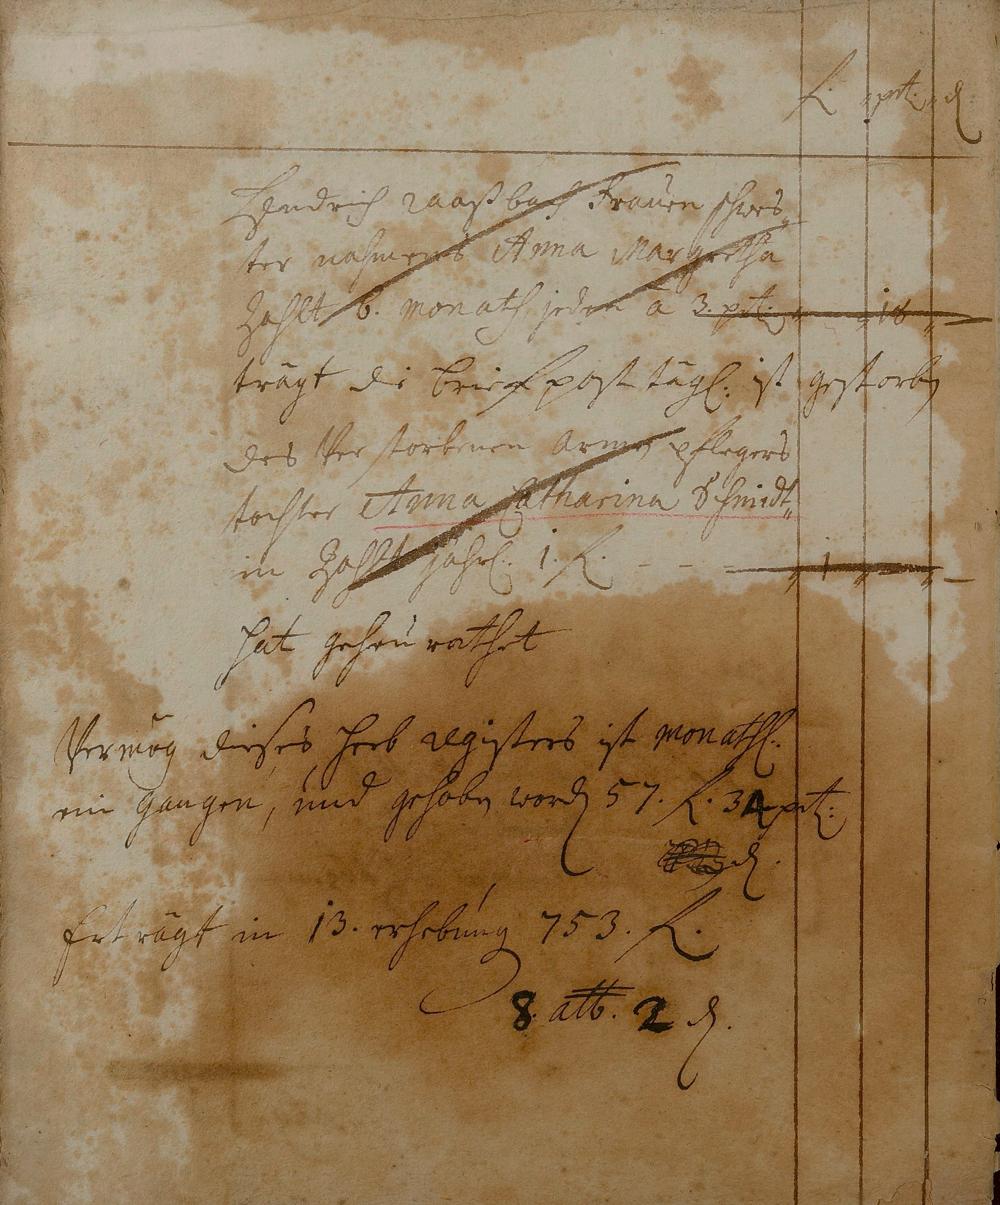 fl. pet. d
Hendrich raaßbach Frauen schwes„
ter nahmens Anna Margretha
Zahlt 6. monath jeden a 3. pet. „ „ 18 „
trägt die briefpost tägl. ist gestorben
des Verstorbenen armen pflegers
tochter Anna Catharina Schmidt„
in Zahlt jährl. 1. fl. - - - „ 1 „ „ -
hat geheurathet
Vermög dieses heb registers ist monathl.
ein gangen, und gehoben worden 57. fl. 34 pet.
d.
Erträgt in 13. erhebung 753. fl.
8. alb. 2 d.